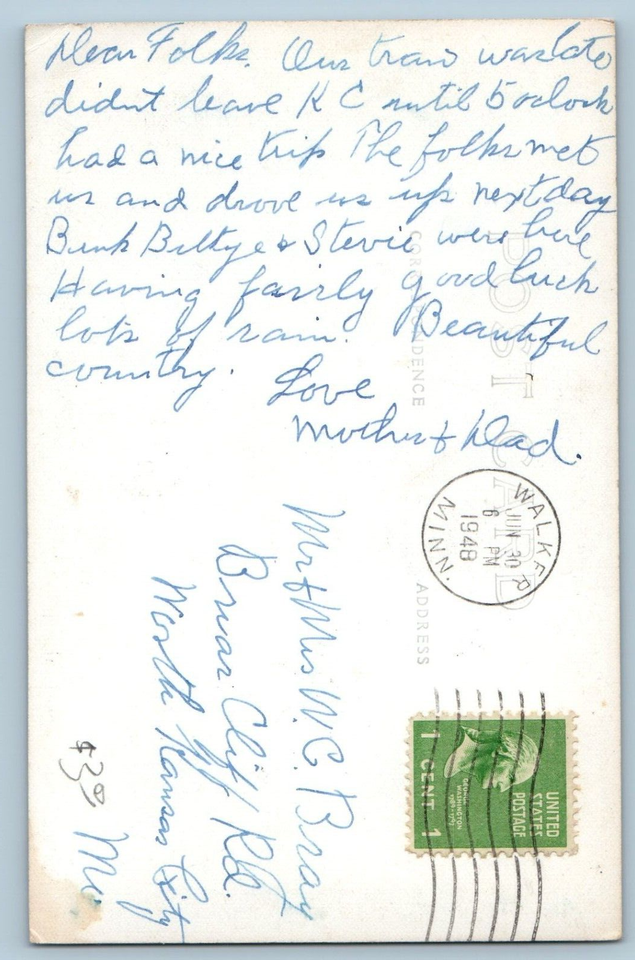 Dear Folks. Our train was late
didn't leave K C until 5 oclock
had a nice trip The folks met
us and drove us up next day
Bunk Bettye & Stevie were here
Having fairly good luck
lots of rain. Beautiful
country. Love
Mother & Dad.
POST CARD
CORRESPONDENCE
ADDRESS
WALKER
JUN 30
6 PM
1948
MINN.
UNITED
STATES
POSTAGE
GEORGE
WASHINGTON
1 CENT 1
Mr & Mrs W. C. Bray
Briar Cliff Rd.
North Kansas City
Mo.